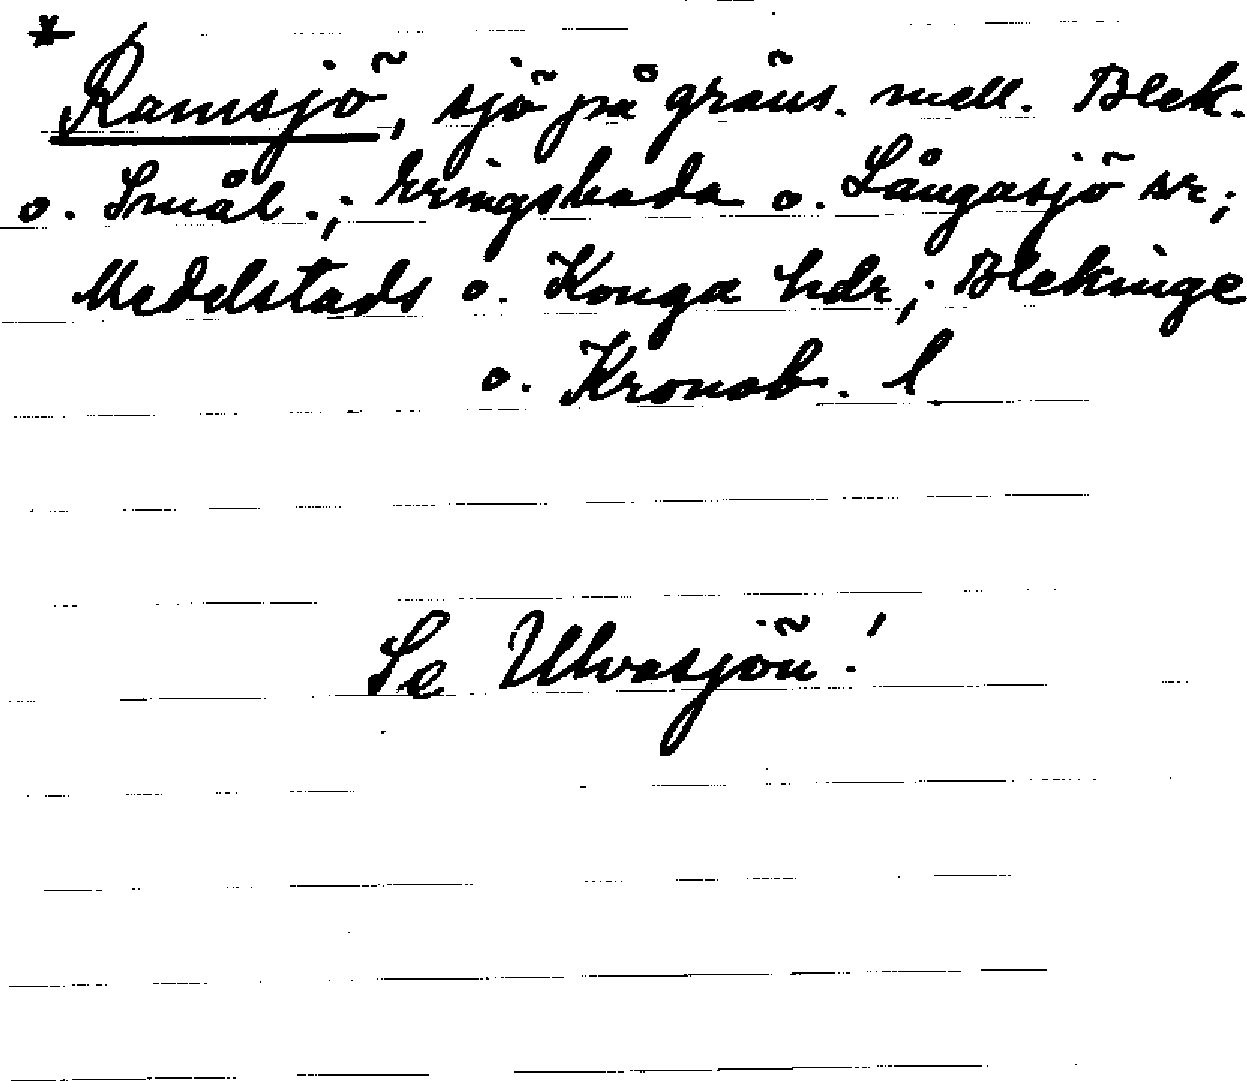 * Ramsjö, sjö på gräns. mell. Blek.
o. Smål.; Kringsboda o. Långasjö snr;
Medelstads o. Konga hdr; Blekinge
o. Kronob. l.
Se Ulvasjön!